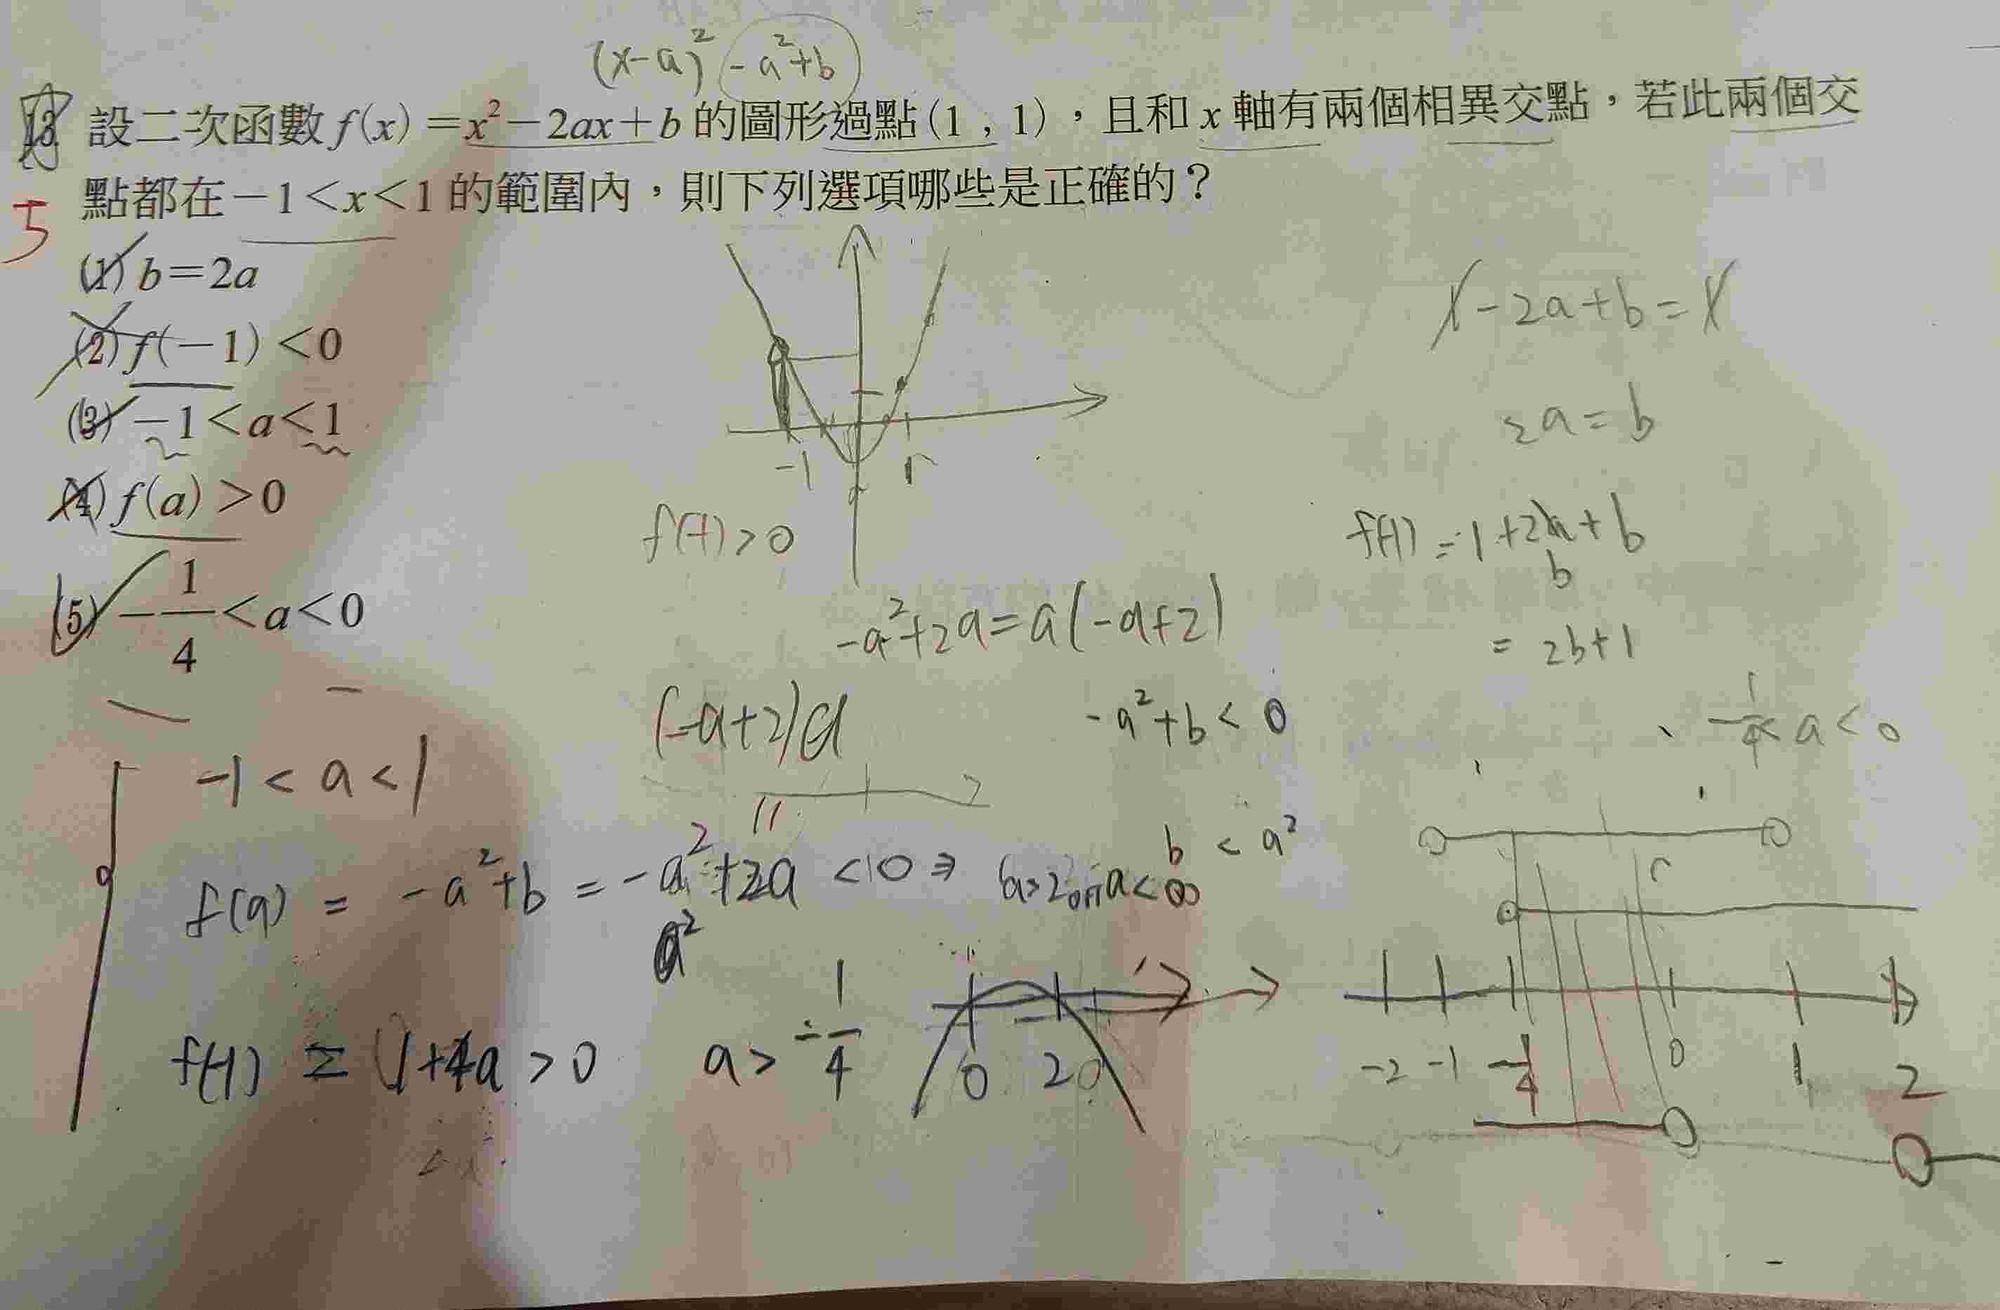 (x-a)² -a²+b
13 設二次函數 f(x)=x²-2ax+b 的圖形過點(1,1),且和 x 軸有兩個相異交點,若此兩個交
點都在-1<x<1 的範圍內,則下列選項哪些是正確的?
5
(1) b=2a
(2) f(-1)<0
(3) -1<a<1
(4) f(a)>0
(5) -1/4<a<0
-1 1
f(-1)>0
1-2a+b=1
2a=b
f(-1)=1+2a+b
b
=2b+1
-a²+2a=a(-a+2)
(-a+2)a
-a²+b<0
-1/4<a<0
-1<a<1
b<a²
f(a)=-a²+b=-a²+2a<0⇒ a>2 or a<0
a²
f(-1)=1+4a>0 a>-1/4
0 2
-2 -1 -1/4 0 1 2